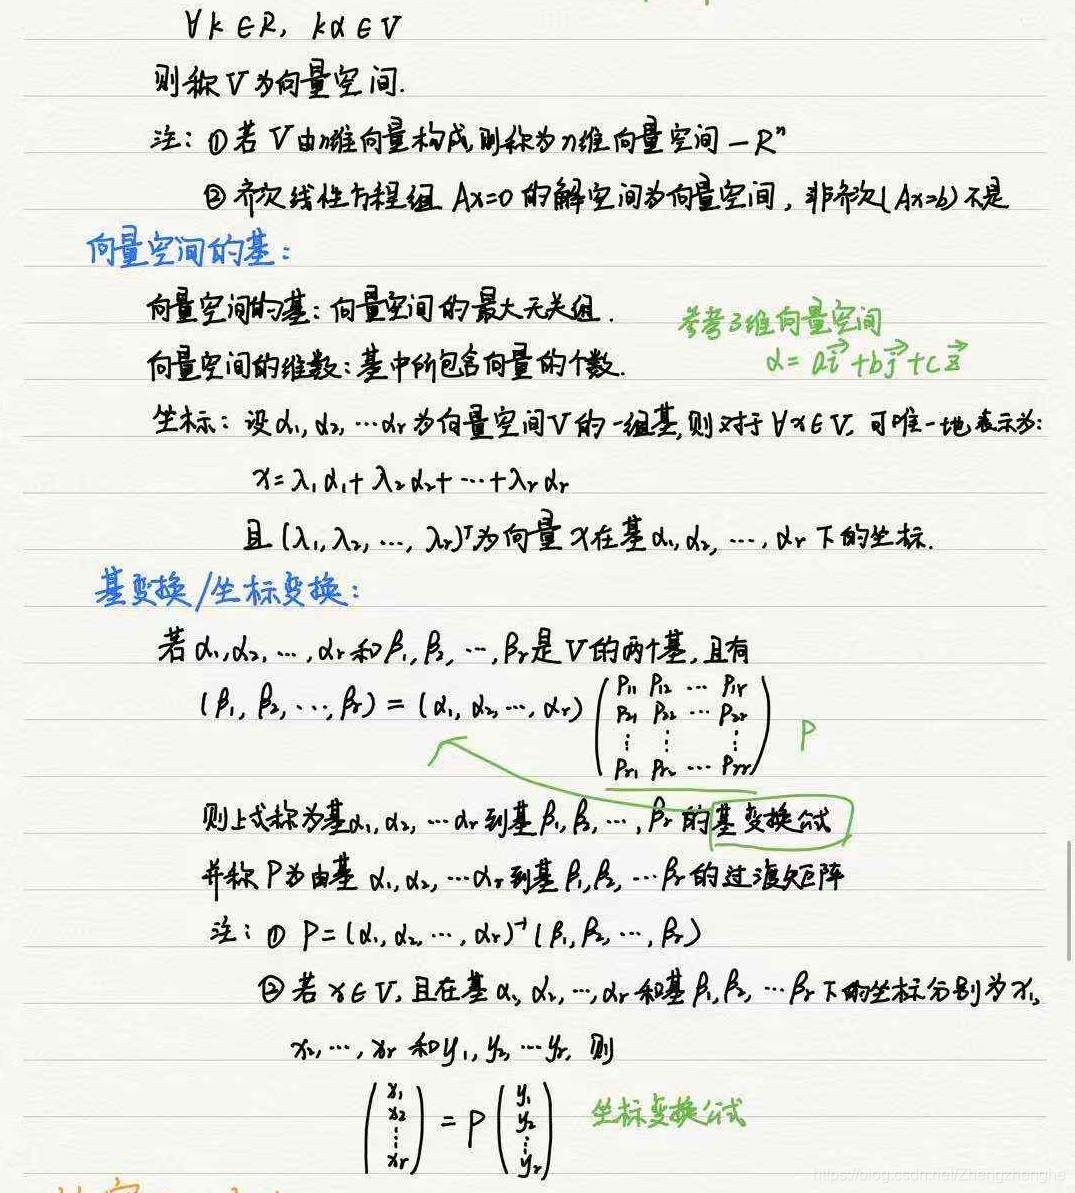 ∀k∈R, kα∈V
则称V为向量空间.
注: ①若V由n维向量构成,则称为n维向量空间—Rⁿ
②齐次线性方程组 Ax=0 的解空间为向量空间, 非齐次(Ax=b)不是
向量空间的基:
向量空间的基: 向量空间的最大无关组.
参考3维向量空间
向量空间的维数: 基中所包含向量的个数.
α= ai⃗+bj⃗+cz⃗
坐标: 设α₁, α₂, …αᵣ为向量空间V的一组基, 则对于∀x∈V, 可唯一地表示为:
x=λ₁α₁+λ₂α₂+…+λᵣαᵣ
且(λ₁, λ₂, …, λᵣ)ᵀ为向量x在基α₁, α₂, …, αᵣ下的坐标.
基变换/坐标变换:
若α₁,α₂, …, αᵣ和β₁, β₂, …, βᵣ是V的两个基, 且有
(β₁, β₂, …, βᵣ) = (α₁, α₂, …, αᵣ) (P₁₁ P₁₂ … P₁ᵣ
P₂₁ P₂₂ … P₂ᵣ
⋮ ⋮ ⋮
Pᵣ₁ Pᵣ₂ … Pᵣᵣ) P
则上式称为基α₁, α₂, …αᵣ到基β₁, β₂, …, βᵣ的基变换公式
并称P为由基α₁, α₂, …αᵣ到基β₁, β₂, …βᵣ的过渡矩阵
注: ① P=(α₁, α₂, …, αᵣ)⁻¹(β₁, β₂, …, βᵣ)
②若x∈V, 且在基α₁, α₂, …, αᵣ和基β₁, β₂, …βᵣ下的坐标分别为x₁,
x₂, …, xᵣ 和y₁, y₂, …yᵣ, 则
(x₁
x₂
⋮
xᵣ) = P (y₁
y₂
⋮
yᵣ) 坐标变换公式
https://blog.csdn.net/Zhengzhenghe